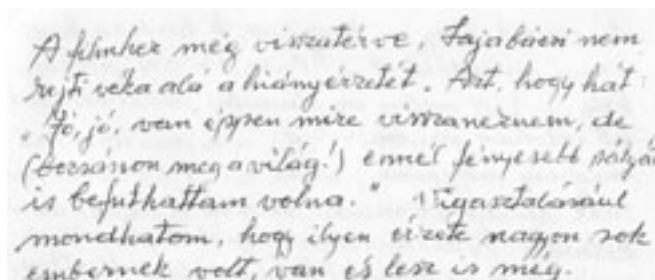 A filmhez még visszatérve, Faja bácsi nem
rejti véka alá a hiányérzetét. Azt, hogy hát:
„Jó, jó, van éppen mire visszanéznem, de
(bocsásson meg a világ!) ennél fényesebb pályát
is befuthattam volna." Vigasztalásául
mondhatom, hogy ilyen érzete nagyon sok
embernek volt, van és lesz is még